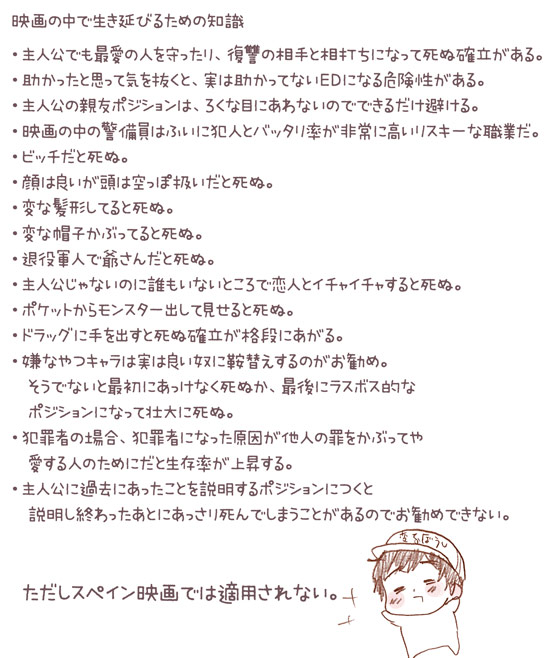 映画の中で生き延びるための知識
・主人公でも最愛の人を守ったり、復讐の相手と相打ちになって死ぬ確立がある。
・助かったと思って気を抜くと、実は助かってないEDになる危険性がある。
・主人公の親友ポジションは、ろくな目にあわないのでできるだけ避ける。
・映画の中の警備員はふいに犯人とバッタリ率が非常に高いリスキーな職業だ。
・ビッチだと死ぬ。
・顔は良いが頭は空っぽ扱いだと死ぬ。
・変な髪形してると死ぬ。
・変な帽子かぶってると死ぬ。
・退役軍人で爺さんだと死ぬ。
・主人公じゃないのに誰もいないところで恋人とイチャイチャすると死ぬ。
・ポケットからモンスター出して見せると死ぬ。
・ドラッグに手を出すと死ぬ確立が格段にあがる。
・嫌なやつキャラは実は良い奴に鞍替えするのがお勧め。
そうでないと最初にあっけなく死ぬか、最後にラスボス的な
ポジションになって壮大に死ぬ。
・犯罪者の場合、犯罪者になった原因が他人の罪をかぶってや
愛する人のためにだと生存率が上昇する。
・主人公に過去にあったことを説明するポジションにつくと
説明し終わったあとにあっさり死んでしまうことがあるのでお勧めできない。
変なぼうし
ただしスペイン映画では適用されない。